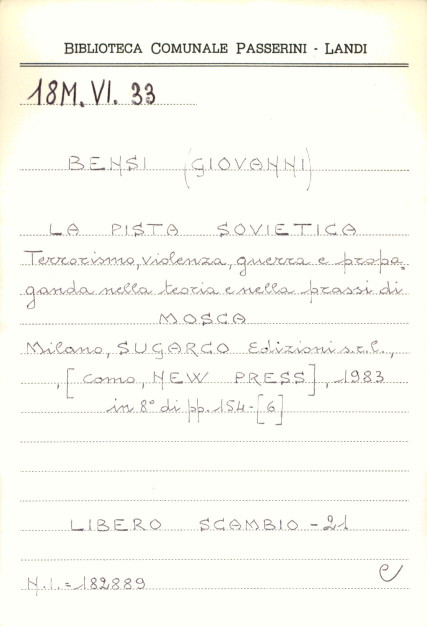 BIBLIOTECA COMUNALE PASSERINI - LANDI
18M. VI. 33
BENSI (GIOVANNI)
LA PISTA SOVIETICA
Terrorismo, violenza, guerra e propa=
ganda nella teoria e nella prassi di
MOSCA
Milano, SUGARCO Edizioni s.r.l.,
, [Como, NEW PRESS], 1983
in 8° di pp. 154-[6]
LIBERO SCAMBIO - 21
N.I. = 182889
e